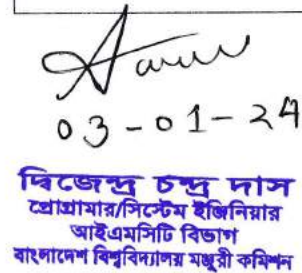 03-01-24
দ্বিজেন্দ্র চন্দ্র দাস
প্রোগ্রামার/সিস্টেম ইঞ্জিনিয়ার
আইএমসিটি বিভাগ
বাংলাদেশ বিশ্ববিদ্যালয় মঞ্জুরী কমিশন